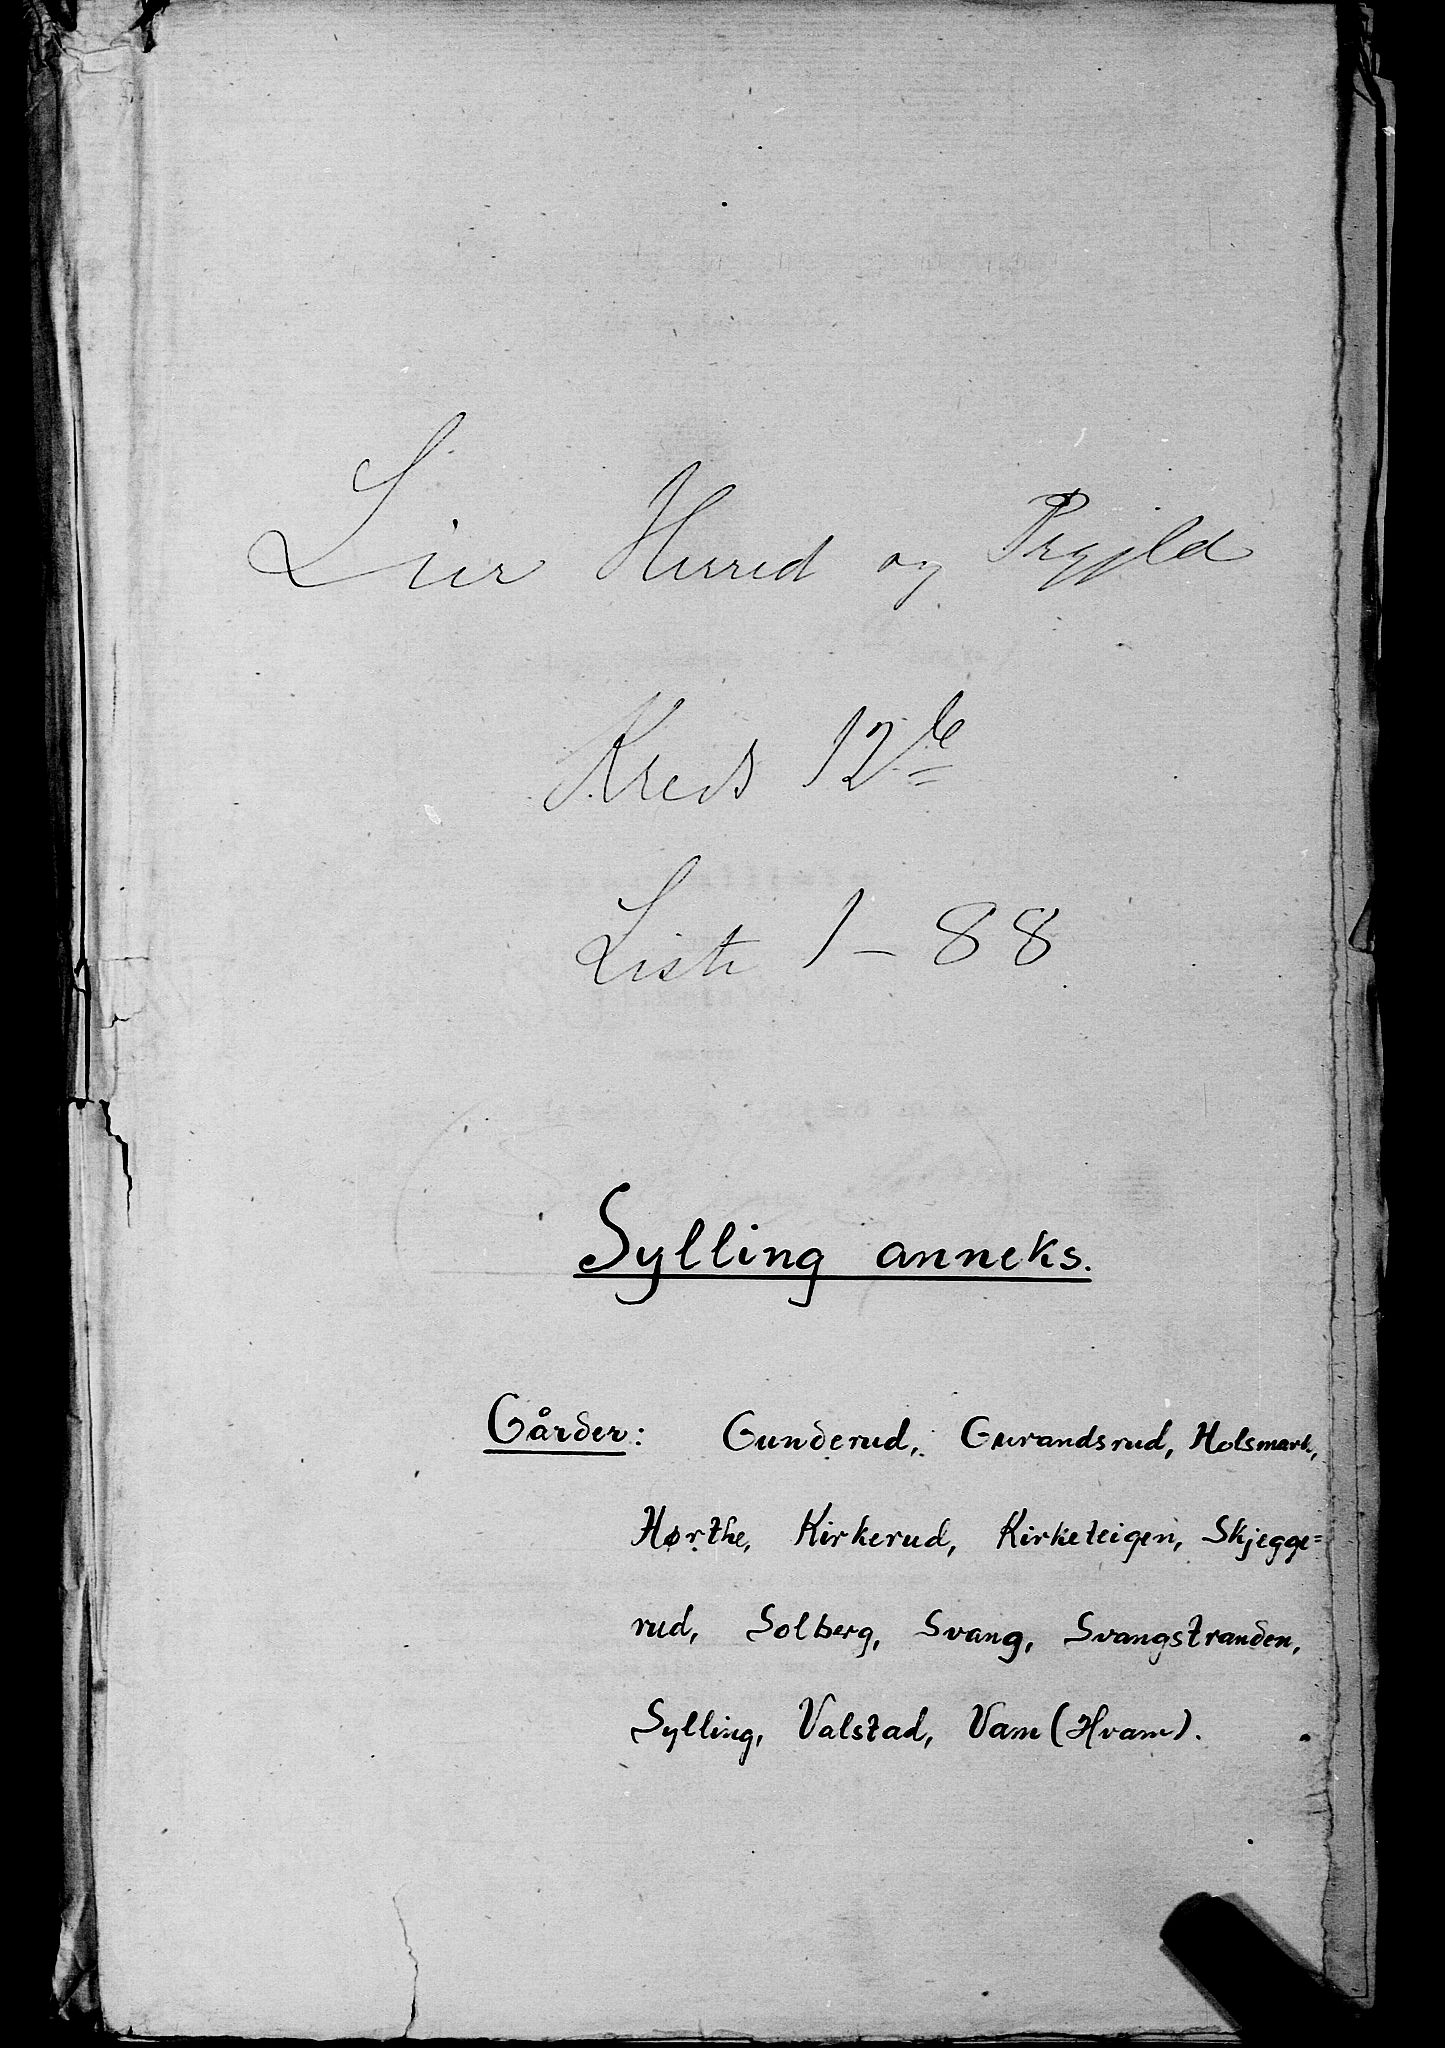 Lier Herred og Prgjld
Kreds 12te
Liste 1 - 88
Sylling anneks.
Gårder: Gunderud, Gurandsrud, Holsmark,
Hørthe, Kirkerud, Kirketeigen, Skjegge=
rud, Solberg, Svang, Svangstranden,
Sylling, Valstad, Vam (Hvam).